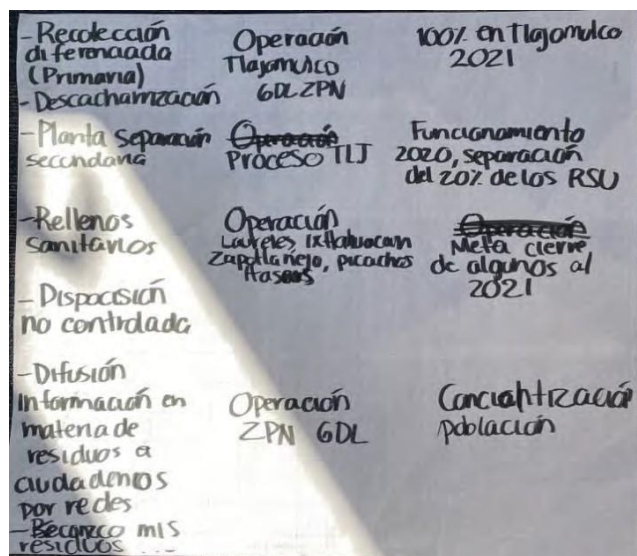 -Recolección
diferenciada
(Primaria)
-Descacharrización
Operación
Tlajomulco
GDL ZPN
100% en Tlajomulco
2021
-Planta separación
secundaria
Operación
Proceso TLJ
Funcionamiento
2020, separación
del 20% de los RSU
-Rellenos
sanitarios
Operación
Laureles, Ixtlahuacan
Zapotlanejo, picachos
Operación
Meta cierre
de algunos al
2021
- Disposición
no controlada
-Difusión
Información en
materia de
residuos a
ciudadanos
por redes
-Operación
ZPN GDL
población
mis
residuos ...